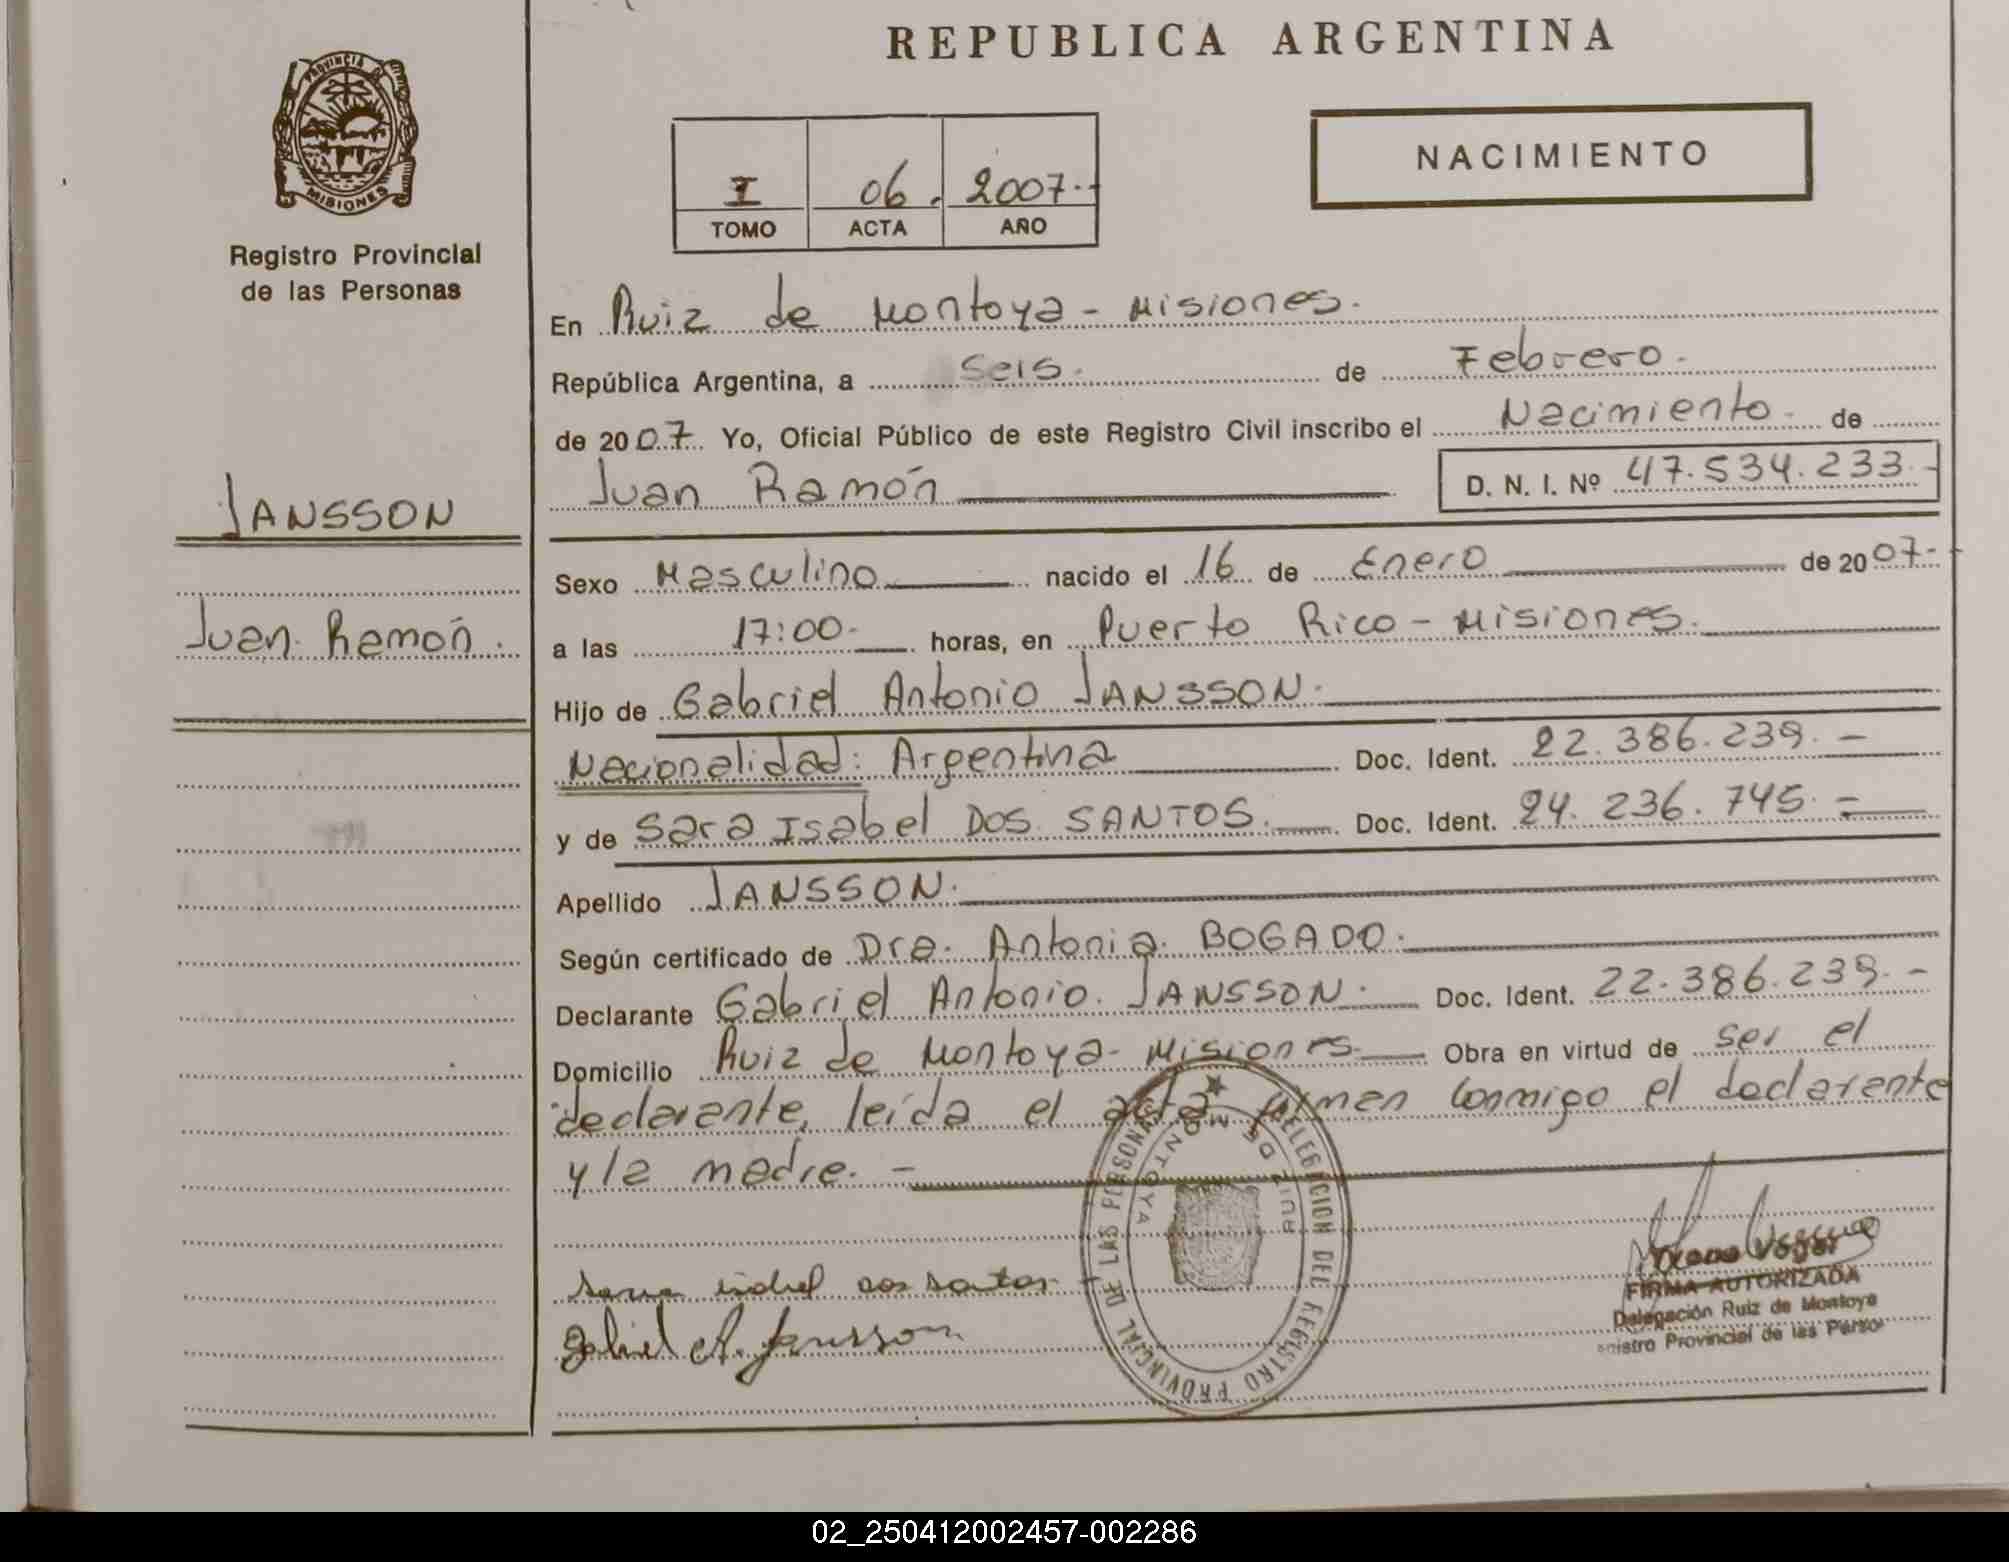 REPUBLICA ARGENTINA
PROVINCIA DE
MISIONES
Registro Provincial
de las Personas
NACIMIENTO
I 06. 2007.-
TOMO ACTA AÑO
En Ruiz de Montoya - Misiones.
República Argentina, a seis. de Febrero.
de 2007. Yo, Oficial Público de este Registro Civil inscribo el Nacimiento. de
Juan Ramón D. N. I. Nº 47.534.233.-
JANSSON
Juan Ramón.
Sexo Masculino nacido el 16 de Enero de 2007.-
a las 17:00. horas, en Puerto Rico - Misiones.
Hijo de Gabriel Antonio JANSSON.
Nacionalidad: Argentina Doc. Ident. 22.386.239.-
y de Sara Isabel DOS SANTOS. Doc. Ident. 24.236.745.-
Apellido JANSSON.
Según certificado de Dra. Antonia BOGADO.
Declarante Gabriel Antonio. JANSSON. Doc. Ident. 22.386.239.-
Domicilio Ruiz de Montoya - Misiones Obra en virtud de ser el
declarante, leída el acta firman conmigo el declarante
y la madre. -
DELEGACION DEL REGISTRO PROVINCIAL DE LAS PERSONAS
RUIZ DE MONTOYA
isabel dos santos
Gabriel A. Jansson
FIRMA AUTORIZADA
Delegación Ruiz de Montoya
Provincial de las Perso
02_250412002457-002286